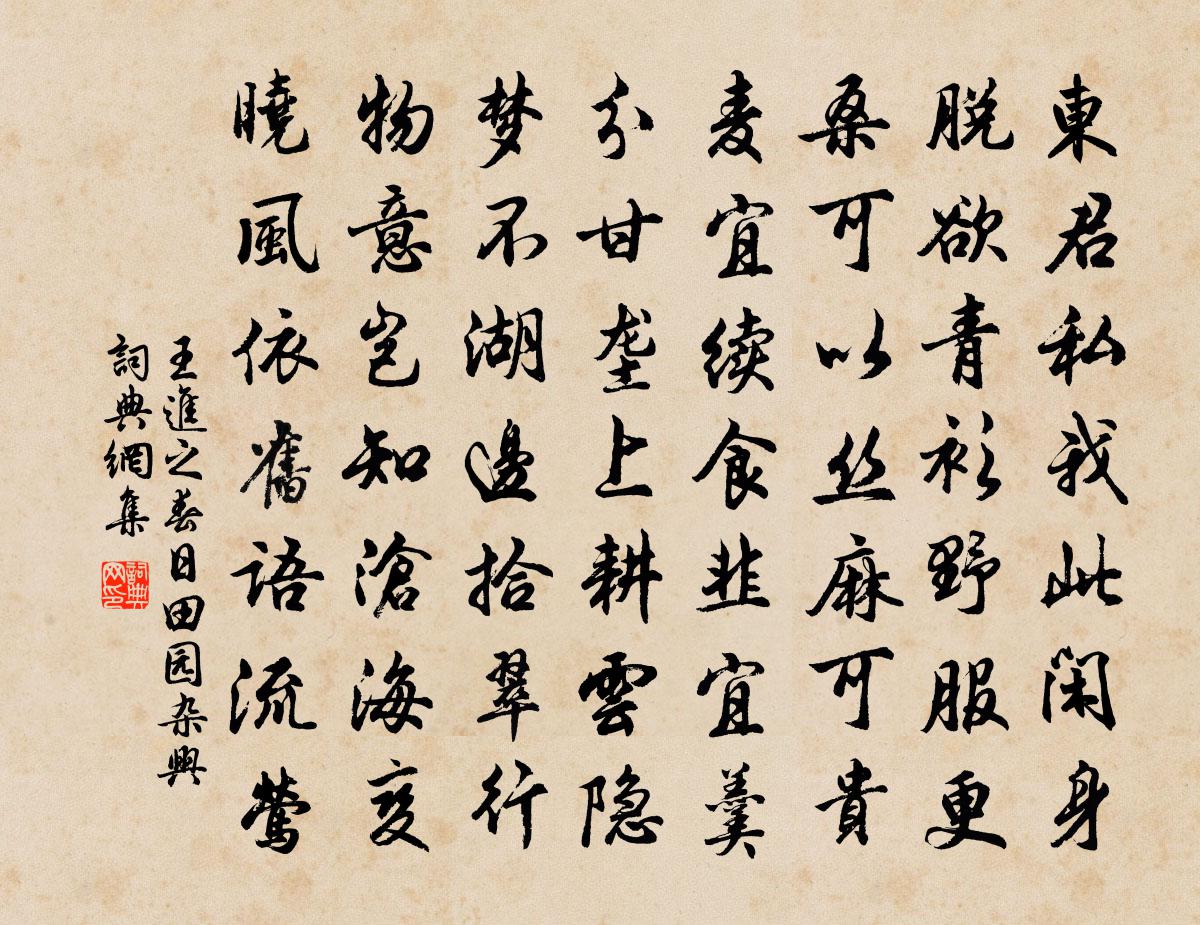 東君私我此闲身
脱欲青衫野服更
桑可以丝麻可貴
麦宜续食韭宜羹
分甘垄上耕雲隐
梦不湖邊拾翠行
物意岂知滄海变
曉風依舊語流鶯
王進之春日田园杂興
詞典網集
詞典网印